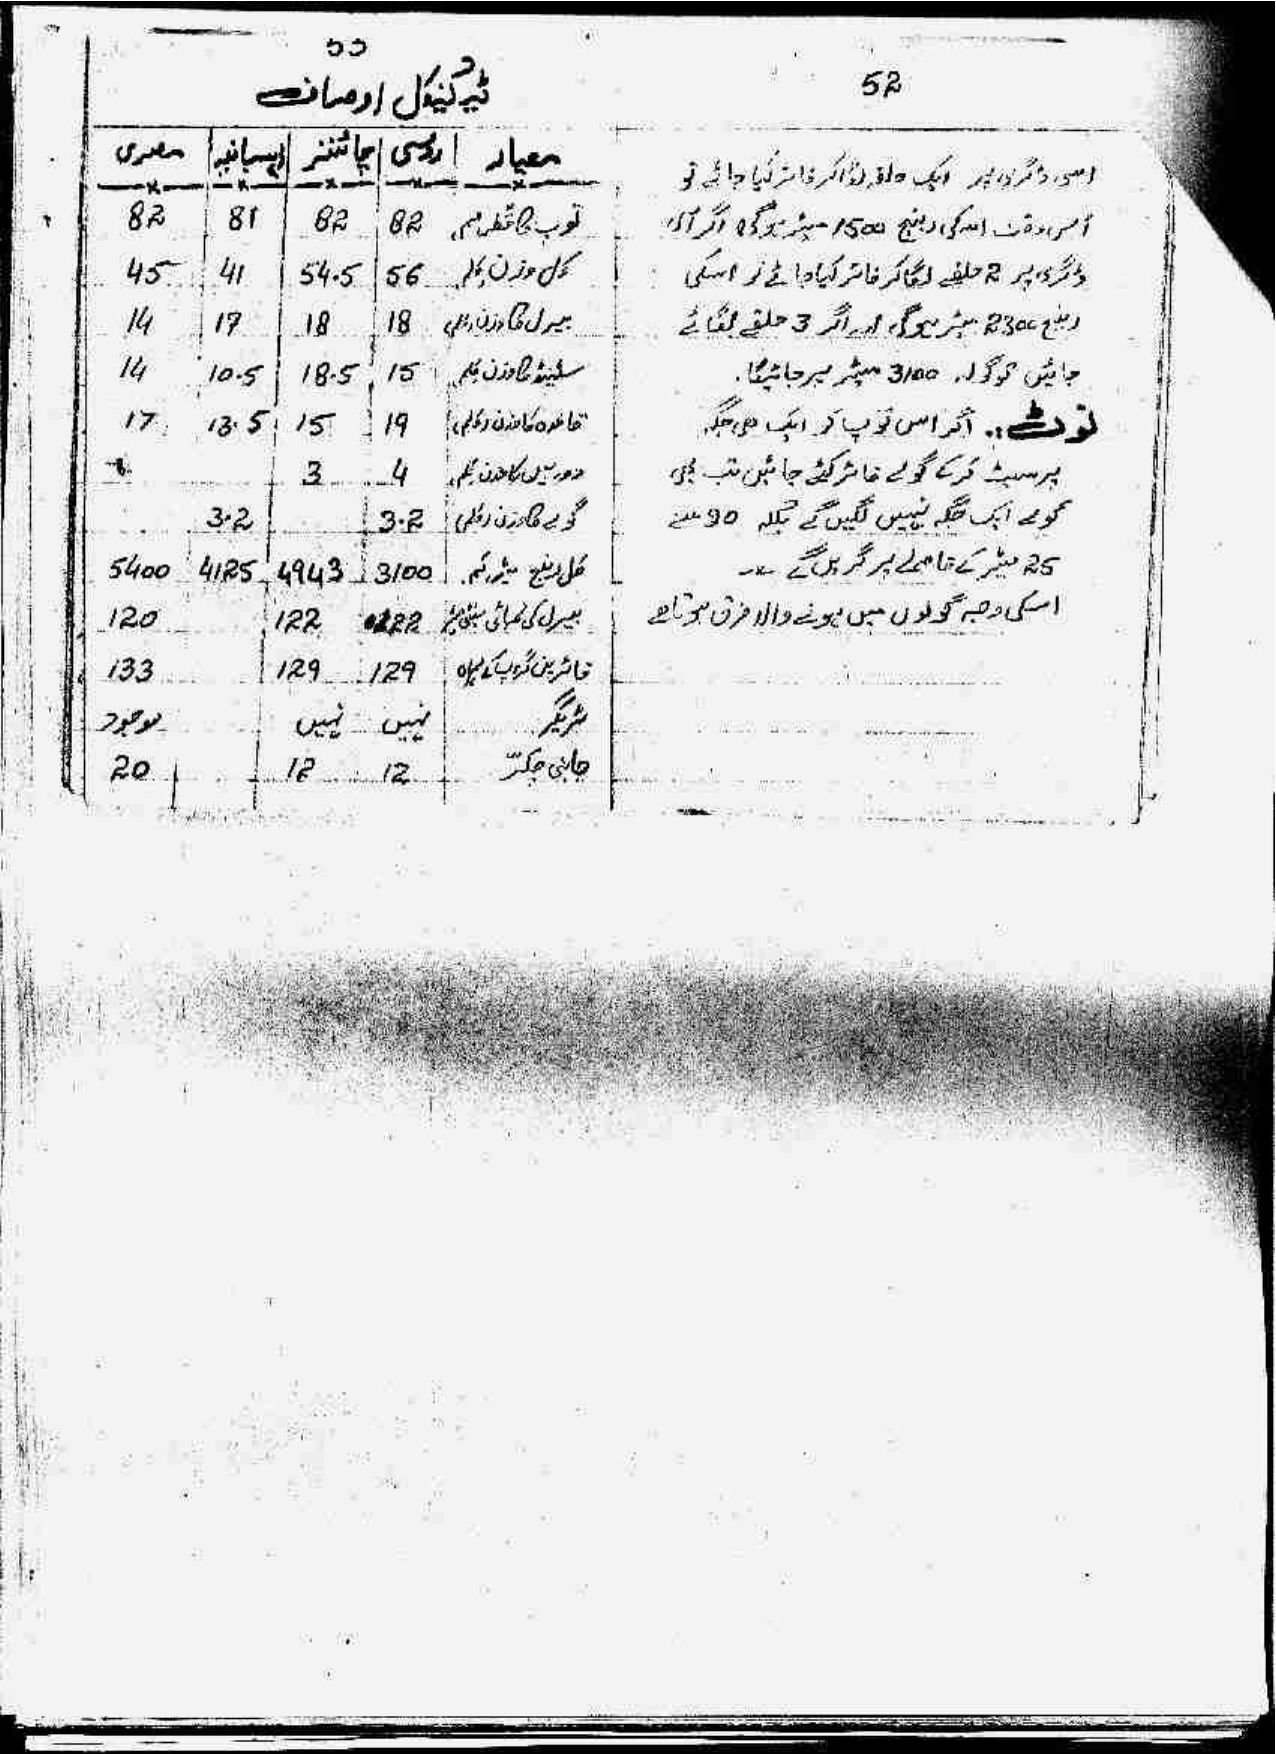 52
اسی ڈگری پر ایک حلقہ لگا کر فائر کیا جائے تو
اس وقت اسکی رینج 1500 میٹر ہوگی اگر اسی
ڈگری پر 2 حلقے لگا کر فائر کیا جائے تو اسکی
رینج 2300 میٹر ہوگی اور اگر 3 حلقے لگائے
جائیں تو گولہ 3100 میٹر پر جائیگا.
نوٹ:. اگر اس توپ کو ایک ہی جگہ
پر سیٹ کرکے گولے فائر کئے جائیں تب بھی
گولے ایک جگہ نہیں لگیں گے بلکہ 90 سے
25 میٹر کے فاصلے پر گریں گے
اسکی وجہ گولوں میں ہونے والا فرق ہوتا ہے
ٹیکنیکل اوصاف
معیار روسی چائنیز ہسپانیہ مصری
توپ کا قطر 82 82 81 82
کل وزن 56 54.5 41 45
بیرل کا وزن 18 18 17 14
سٹینڈ کا وزن 15 18.5 10.5 14
قاعدہ کا وزن 19 15 13.5 17
دوربین کا وزن 4 3
گولے کا وزن 3.2 3.2
کل رینج 3100 4943 4125 5400
بیرل کی لمبائی 122 122 120
129 129 133
ٹریگر نہیں نہیں موجود
جانبی چکر 12 12 20